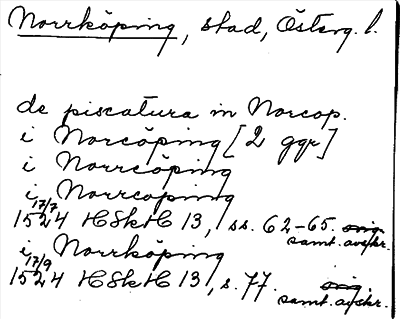 Norrköping, stad, Österg. l.
de piscatura in Norcop.
i Norcöping [2 ggr]
i Norrcöping
i Norrcoping
17/7
1524 HSkH 13, ss. 62-65. orig.
samt. avskr.
i Norrköping
17/9
1524 HSkH 13, s. 77. orig.
samt. avskr.